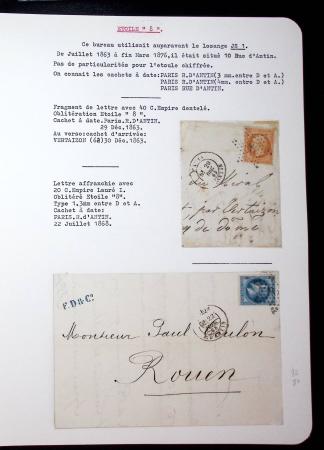 ETOILE "8".
Ce bureau utilisait auparavant le losange JS 1.
De Juillet 1863 à fin Mars 1876, il était situé 10 Rue d'Antin.
Pas de particularités pour l'etoule chiffrée.
On connait les cachets à date: PARIS R.D'ANTIN(3 mm.entre D et A.)
PARIS R.D'ANTIN(4mm. entre D et A.)
PARIS RUE D'ANTIN.
Fragment de lettre avec 40 C.Empire dentelé.
Oblitération Etoile " 8".
Cachet à date.Paris.R.D'ANTIN.
29 Déc.1863.
Au verso:cachet d'arrivée:
VERTAIZON (62)30 Déc.1863.
par Vertaizon
de dome
Lettre affranchie avec
20 C.Empire Lauré I.
Oblitéré Etoile "8".
Type 1.3mm entre D et A.
Cachet à date:
PARIS.R.d'ANTIN.
22 Juillet 1868.
F.D & Cº
Monsieur Paul Coulon
Rouen